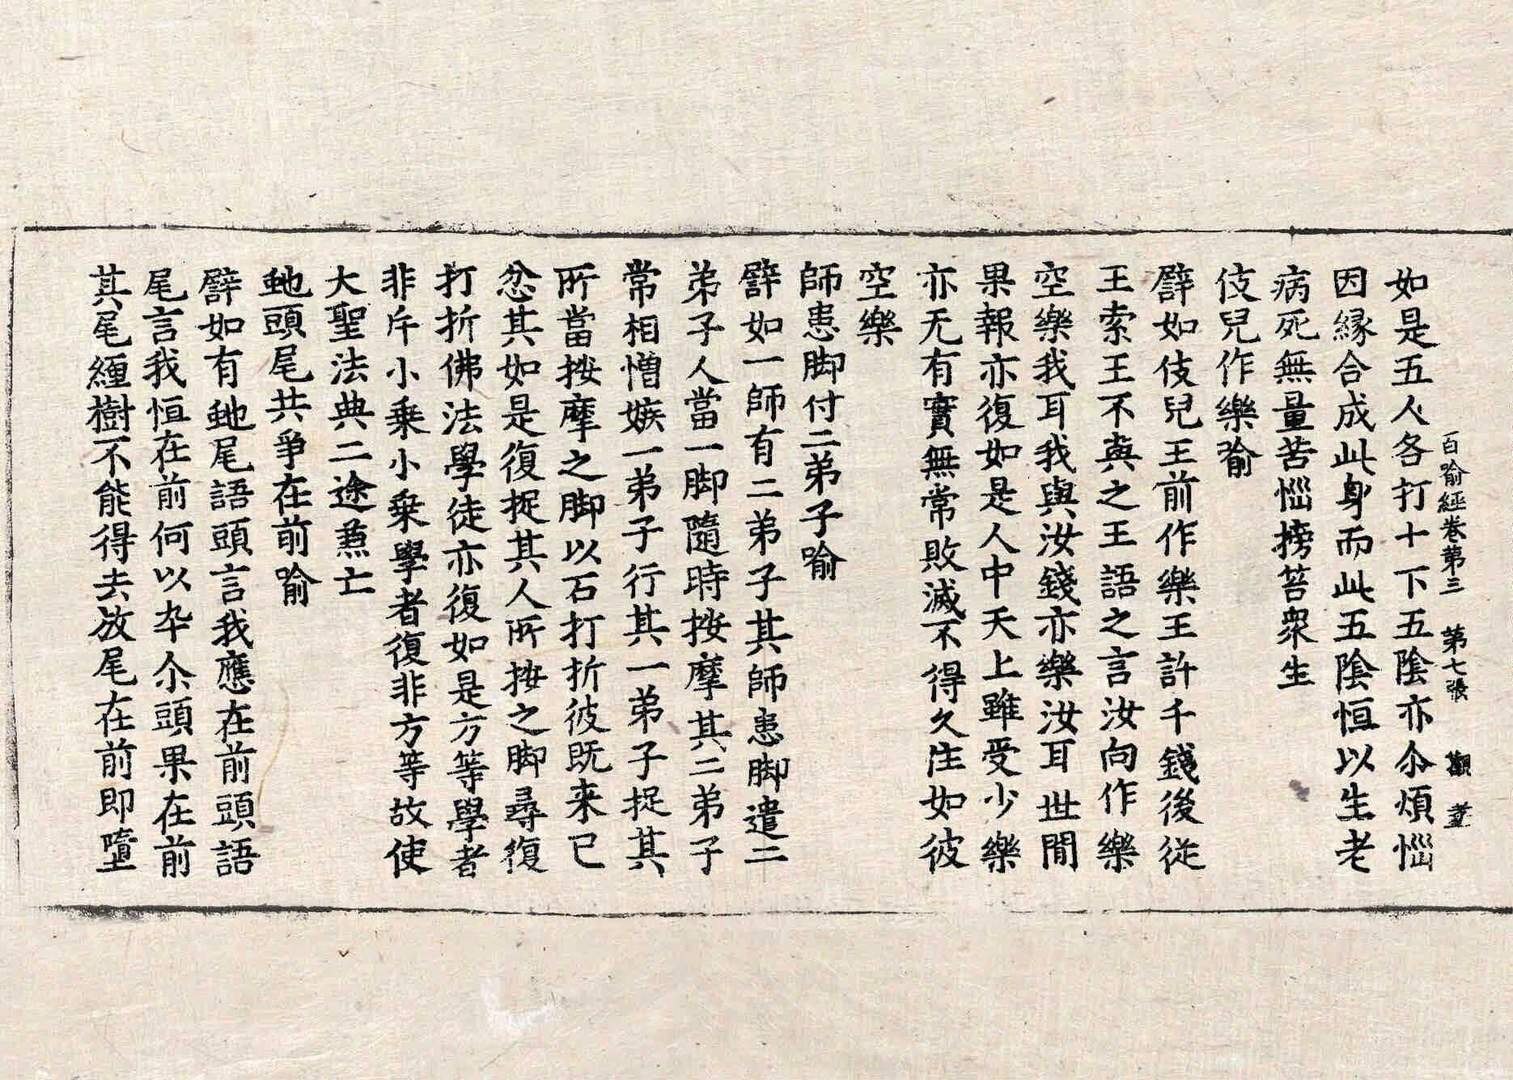 百喻經卷第三 第七張 觀
如是五人各打十下五陰亦尒煩惱
因緣合成此身而此五陰恒以生老
病死無量苦惱搒笞衆生
伎兒作樂喻
譬如伎兒王前作樂王許千錢後從
王索王不與之王語之言汝向作樂
空樂我耳我與汝錢亦樂汝耳世間
果報亦復如是人中天上雖受少樂
亦无有實無常敗滅不得久住如彼
空樂
師患脚付二弟子喻
譬如一師有二弟子其師患脚遣二
弟子人當一脚隨時按摩其二弟子
常相憎嫉一弟子行其一弟子捉其
所當按摩之脚以石打折彼既来已
忿其如是復捉其人所按之脚尋復
打折佛法學徒亦復如是方等學者
非斥小乘小乘學者復非方等故使
大聖法典二途兼亡
虵頭尾共爭在前喻
譬如有虵尾語頭言我應在前頭語
尾言我恒在前何以卒尒頭果在前
其尾纏樹不能得去放尾在前即墮